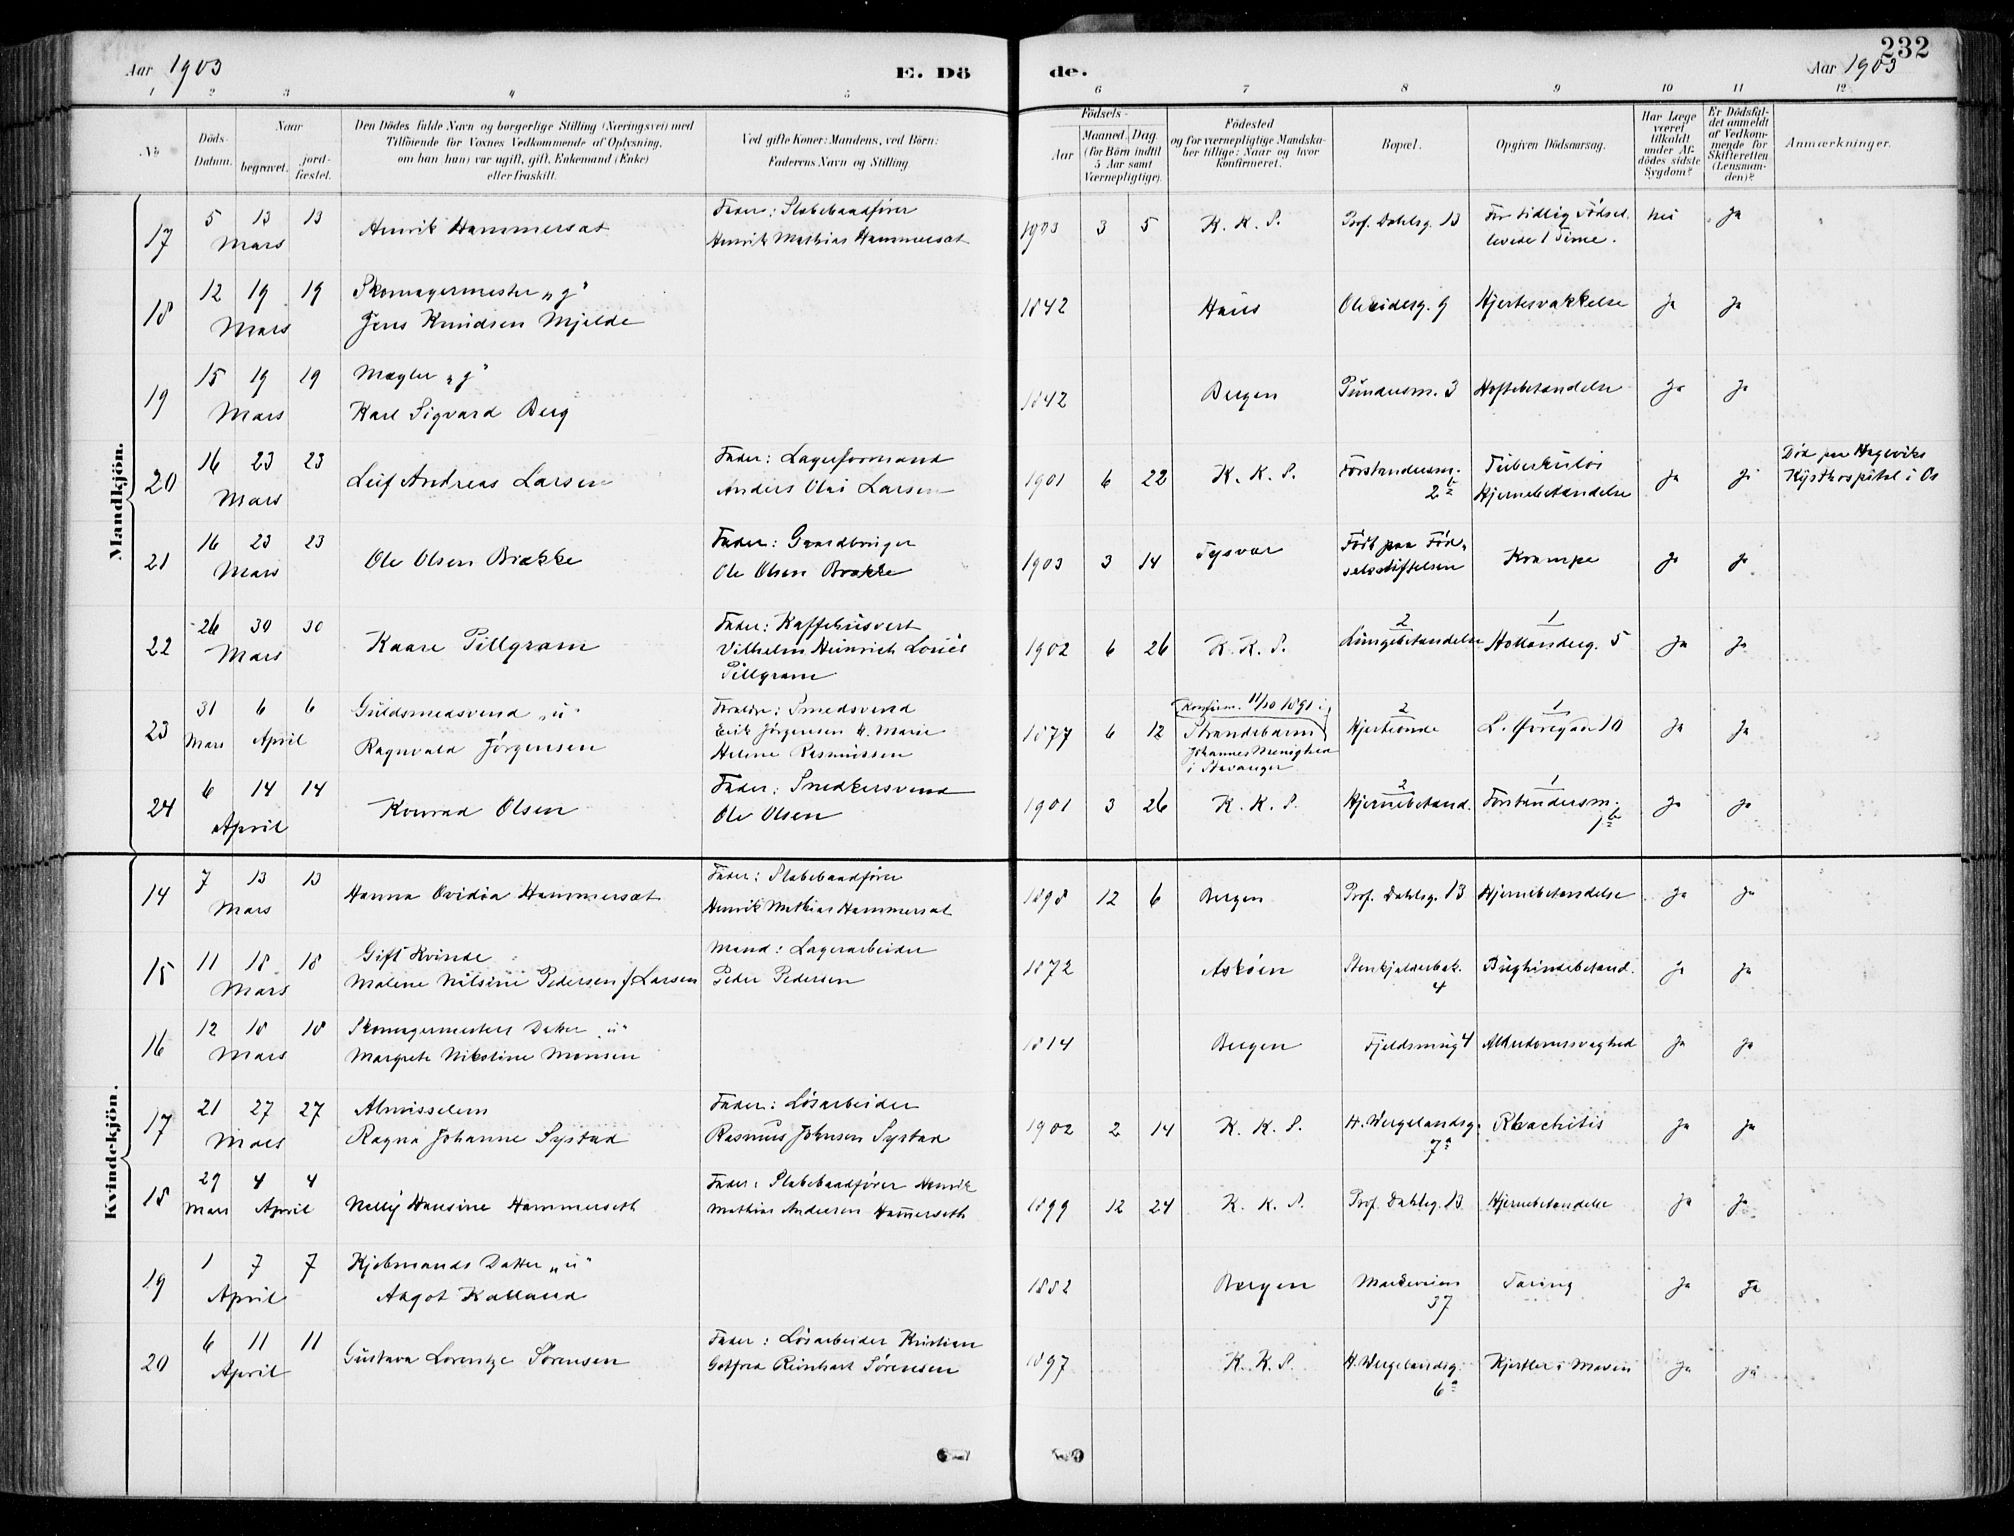 232
Aar 1903 E. Dö de. Aar 1903
1 2 3 4 5 6 7 8 9 10 11 12
No
Döds-Datum.
Naar
begravet.
jord-fæstet.
Den Dödes fulde Navn og borgerlige Stilling (Næringsvei) med
Tilföiende for Voxnes Vedkommende af Oplysning,
om han (hun) var ugift, gift, Enkemand (Enke)
eller fraskilt.
Ved gifte Koner: Mandens, ved Börn:
Faderens Navn og Stilling
Födsels-
Aar
Maaned. Dag.
(for Börn indtil
5 Aar samt
Værnepligtige).
Födested
og for værnepligtige Mandska-
ber tillige: Naar og hvor
konfirmeret.
Bopæl.
Opgiven Dödsaarsag.
Har Læge
været
tilkaldt
under Af-
dödes sidste
Sygdom?
Er Dödsfal-
det anmeldt
af Vedkom-
mende for
Skifteretten
(Lensman-
den)?
Anmærkninger.
Mandkjön.
17 5 13 13 Mars Henrik Hammersæt
Fader: Slæbebaadfører
Henrik Mathias Hammersæt
1903 3 5 K. K. S. Prof. Dahlsg. 13 For tidlig Fødsel.
levede 1 Time. Nei Ja
18 12 19 19 Mars Skomagermester „g“
Jens Knudsen Mjelde
1842 Haus Ole Eidesg. 9 Hjertesvækkelse Ja Ja
19 15 19 19 Mars Mægler „g“
Karl Sigvard Berg
1842 Bergen 3 Hoftebetændelse Ja Ja
20 16 23 23 Mars Leif Andreas Larsen
Fader: Lagerformand
Anders Olai Larsen
1901 6 22 K. K. S. Forstandersm.
2b
Tuberkuløs
Hjernebetændelse Ja Ja
Død paa Hageviks
Kysthospital i Os
21 16 23 23 Mars Ole Olsen Brække
Fader: Gaardbruger
Ole Olsen Brække
1903 3 14 Tysvær Født paa Fød-
selsstiftelsen Krampe Ja Ja
22 26 30 30 Mars Kaare Pillgram
Fader: Kaffehusvert
Vilhelm Heinrich Louis
Pillgram
1902 6 26 K. K. S. 2
Lungebetændelse 1
Hollenderg. 5 Ja Ja
23 31 Mars 6 6 April Guldsmedsvend „u“
Ragnvald Jørgensen
Forældre: Smedsvend
Erik Jørgensen & Marie
Helene Rasmussen
1877 6 12 Konfirm. 11/10 1891 i
Strandebarm
Johannes Menighed
i Stavanger
2
Hjerteonde 1
L. Øvregaden 10 Ja Ja
24 6 14 14 April Konrad Olsen
Fader: Snedkersvend
Ole Olsen
1901 3 26 K. K. S. 2
Hjernebetænd. 1
Forstandersm.
1b Ja Ja
Kvindekjön.
14 7 13 13 Mars Hanna Ovidia Hammersæt
Fader: Slæbebaadfører
Henrik Mathias Hammersæt
1898 12 6 Bergen Prof. Dahlsg. 13 Hjernebetændelse Ja Ja
15 11 18 18 Mars Gift Kvinde
Malene Nilsine Pedersen f. Larsen
Mand: Lagerarbeider
Peder Pedersen
1872 Askøen Stenkjelderbak.
4 Bughindebetænd. Ja Ja
16 12 18 18 Mars Skomagermesters Datter „u“
Margrete Nikoline Monsen
1814 Bergen Fjeldsmug 4 Alderdomssvaghed Ja Ja
17 21 27 27 Mars Almisselem
Ragna Johanne Systad
Fader: Løsarbeider
Rasmus Johnsen Systad
1902 2 14 K. K. S. H. Wergelandsg.
7a Rhachitis Ja Ja
18 29 Mars 4 4 April Nelly Hansine Hammerseth
Fader: Slæbebaadfører Henrik
Mathias Andersen Hammerseth
1899 12 24 K. K. S. Prof. Dahlsg. 13 Hjernebetændelse Ja Ja
19 1 7 7 April Kjøbmands Datter „u“
Aagot Kalland
1882 Bergen Markeveien
37 Tæring Ja Ja
20 6 11 11 April Gustava Lorentze Sørensen
Fader: Løsarbeider Kristian
Gotfred Reinhart Sørensen
1897 K. K. S. H. Wergelandsg.
6a Kjertler i Maven Ja Ja